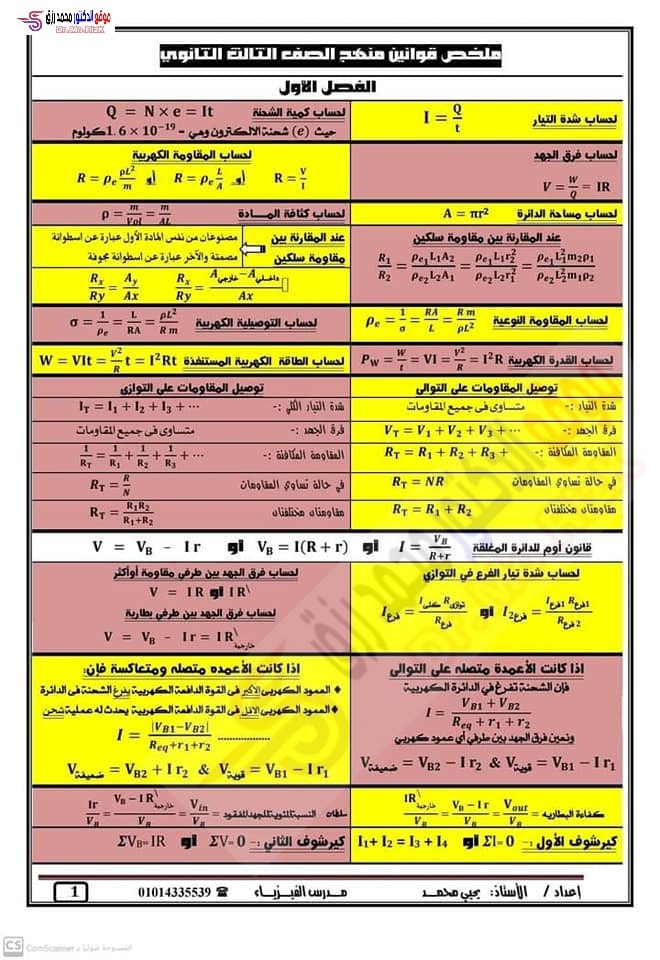 موقع الدكتور محمد رزق
Dr.Mo.RizK
ملخص قوانين منهج الصف الثالث الثانوي
الفصل الأول
لحساب شدة التيار I = Q/t
لحساب كمية الشحنة Q = N × e = It
حيث (e) شحنة الالكترون وهي = 1.6 × 10⁻¹⁹ كولوم
لحساب فرق الجهد
V = W/Q = IR
لحساب المقاومة الكهربية
R = V/I أو R = ρₑ L/A أو R = ρₑ ρL²/m
لحساب مساحة الدائرة A = πr²
لحساب كثافة المــــادة ρ = m/Vol = m/AL
عند المقارنة بين مقاومة سلكين
R₁/R₂ = ρe₁L₁A₂/ρe₂L₂A₁ = ρe₁L₁r₂²/ρe₂L₂r₁² = ρe₁L₁²m₂ρ₁/ρe₂L₂²m₁ρ₂
عند المقارنة بين مقاومة سلكين
مصنوعان من نفس المادة الأول عبارة عن اسطوانة
مصمتة والآخر عبارة عن اسطوانة مجوفة
Rx/Ry = Ay/Ax Rx/Ry = A خارجي − A داخلي/Ax
لحساب المقاومة النوعية ρₑ = 1/σ = RA/L = R m/ρL²
لحساب التوصيلية الكهربية σ = 1/ρₑ = L/RA = ρL²/R m
لحساب القدرة الكهربية P_W = W/t = VI = V²/R = I²R
لحساب الطاقة الكهربية المستنفذة W = VIt = V²/R t = I²Rt
توصيل المقاومات على التوالى
شدة التيار :- متساوى فى جميع المقاومات
فرق الجهد :- V_T = V₁ + V₂ + V₃ + ⋯
المقاومة المكافئة :- R_T = R₁ + R₂ + R₃ +
في حالة تساوي المقاومات R_T = NR
مقاومتان مختلفتان R_T = R₁ + R₂
توصيل المقاومات على التوازى
شدة التيار الكلي :- I_T = I₁ + I₂ + I₃ + ⋯
فرق الجهد :- متساوى فى جميع المقاومات
المقاومة المكافئة :- 1/R_T = 1/R₁ + 1/R₂ + 1/R₃ + ⋯
في حالة تساوي المقاومات R_T = R/N
مقاومتان مختلفتان R_T = R₁R₂/R₁+R₂
قانون أوم للدائرة المغلقة I = V_B/R+r أو V_B = I(R + r) أو V = V_B − I r
لحساب شدة تيار الفرع في التوازي
I فرع = I كلى R توازى/R فرع أو I₂ فرع = I₁ فرع R₁ فرع/R₂ فرع
لحساب فرق الجهد بين طرفي مقاومة أوأكثر
V = IR أو IR\
لحساب فرق الجهد بين طرفي بطارية
V = V_B − I r = IR\ خارجية
اذا كانت الأعمدة متصله على التوالى
فإن الشحنة تفرغ في الدائرة الكهربية
I = V_B1 + V_B2/R_eq + r₁ + r₂
ونعين فرق الجهد بين طرفي أي عمود كهربي
V ضعيفة = V_B2 − I r₂ & V قوية = V_B1 − I r₁
اذا كانت الأعمده متصله ومتعاكسة فإن:
♦ العمود الكهربى الأكبر فى القوة الدافعة الكهربية يفرغ الشحنة فى الدائرة
♦ العمود الكهربى الاقل فى القوة الدافعة الكهربية يحدث له عملية شحن
I = |V_B1−V_B2|/R_eq+r₁+r₂ ..................
V ضعيفة = V_B2 + I r₂ & V قوية = V_B1 − I r₁
كفاءة البطاريه = V_out/V_B = V_B − I r/V_B = IR\ خارجية/V_B
النسبة المئوية للجهد المفقود = V_in/V_B = V_B − IR\ خارجية/V_B = Ir/V_B
كيرشوف الأول :- ΣI= 0 أو I₁+ I₂ = I₃ + I₄
كيرشوف الثاني :- ΣV= 0 أو ΣV_B= IR
إعداد / الأستاذ: يحيي محمد مدرس الفيزياء ☎ 01014335539 1
CS الممسوحة ضوئيا بـ CamScanner